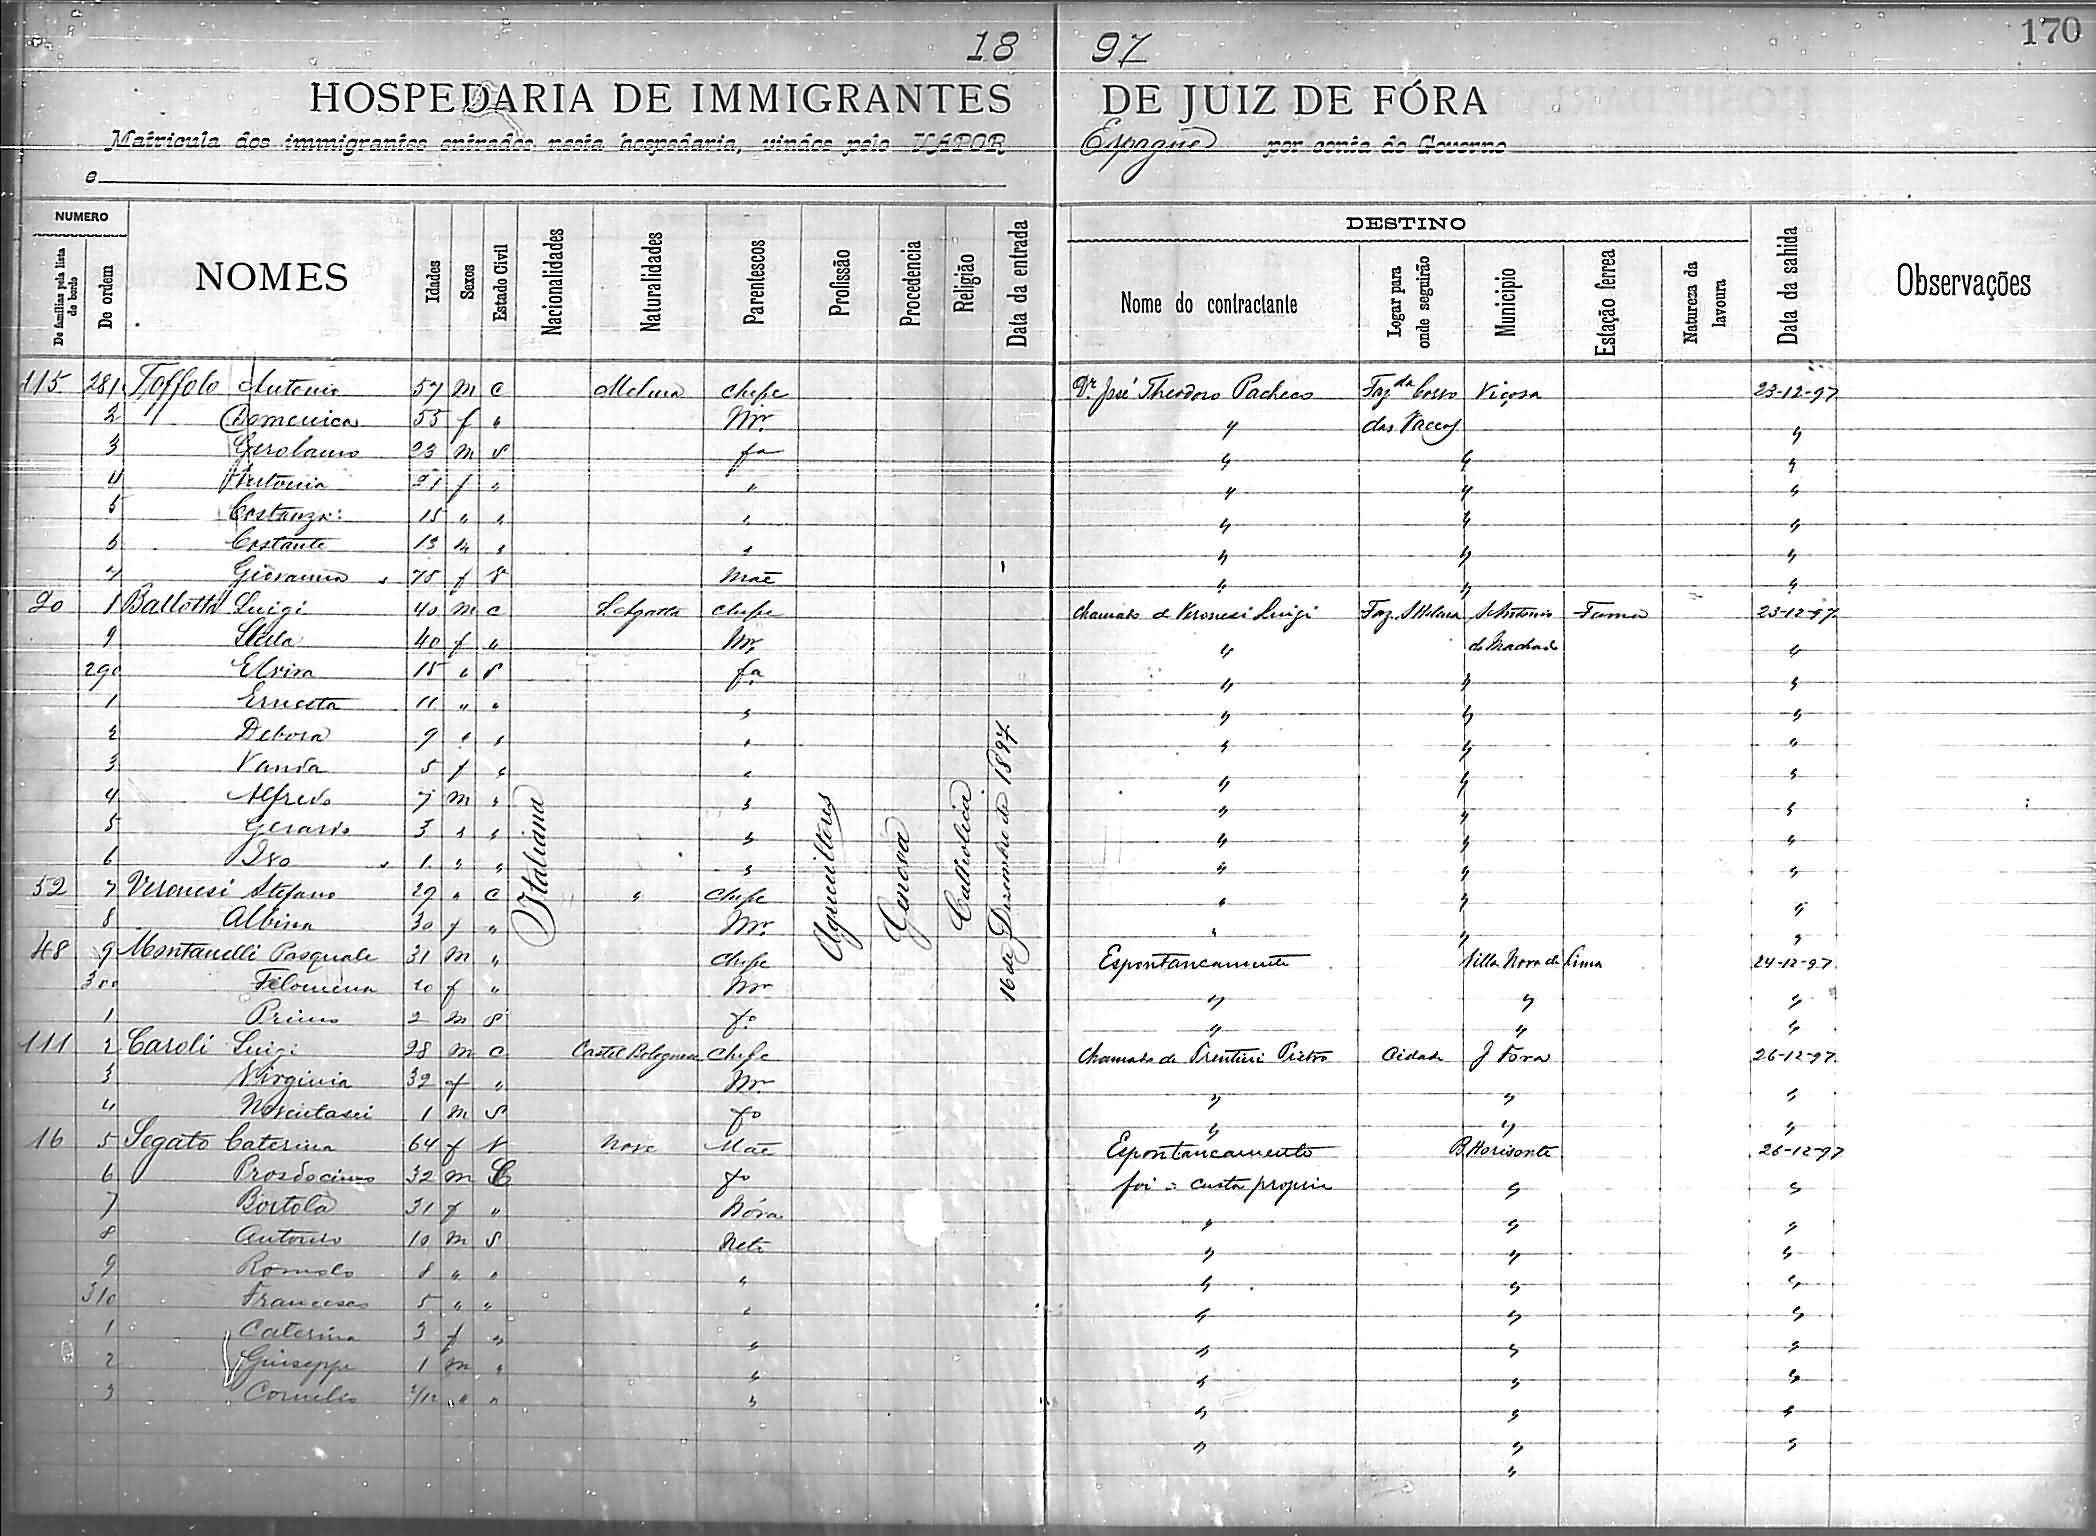 170
18 97
HOSPEDARIA DE IMMIGRANTES DE JUIZ DE FÓRA
Matricula dos immigrantes entrados nesta hospedaria, vindos pelo VAPOR Espagne por conta do Governo
e
NUMERO
De familias pela lista de bordo
De ordem
NOMES
Idades
Sexos
Estado Civil
Nacionalidades
Naturalidades
Parentescos
Profissão
Procedencia
Religião
Data da entrada
DESTINO
Nome do contractante
Logar para onde seguirão
Municipio
Estação ferrea
Natureza da lavoura
Data da sahida
Observações
115 281 Toffolo Antonio 57 m c Meluna chefe Dr. José Theodoro Pacheco Fazda Corro Viçosa 23-12-97
2 Domenica 55 f " Mr. " das Vaccas "
3 Gerolamo 23 m s fo " " "
4 Antonia 21 f " " " " "
5 Costanza 15 " " " " " "
6 Costante 13 m " " " " "
7 Giovanna 75 f V Mãe " " "
20 1 Ballotta Luigi 40 m c S. Agatta chefe chamado de Veronesi Luigi Faz. S Helena S Antonio Fama 23-12-97
9 Stella 40 f " Mr. " do Machado "
290 Elvira 15 " s fa " " "
1 Ernesta 11 " " " " " "
2 Debora 9 " " " " " "
3 Vanda 5 f " " " " "
4 Alfredo 7 m " " " " "
5 Gerardo 3 " " " " " "
6 Ivo 1 " " " " " "
52 7 Veronesi Stefano 29 " c " chefe " " "
8 Albina 30 f " Mr. " " "
48 9 Montanelli Pasquale 31 m " chefe Espontaneamente Villa Nova de Lima 24-12-97
300 Filomena 20 f " Mr " " "
1 Primo 2 m s fo " " "
111 2 Caroli Luigi 28 m c Castel Bolognese chefe chamado de Trentini Pietro Cidade J Fora 26-12-97
3 Virginia 32 f " Mr " " "
4 1 m s fo " " "
16 5 Segato Caterina 64 f V Nove Mãe Espontaneamente B Horisonte 26-12-97
6 Prosdocimo 32 m C fo foi a custa propria " "
7 Bortola 31 f " Nóra " " "
8 Antonio 10 m s Neto " " "
9 Romolo 8 " " " " " "
310 Francesco 5 " " " " " "
1 Caterina 3 f " " " " "
2 Giuseppe 1 m " " " " "
3 Cornelio " " " " " "
Italiana
Agricultores
Genova
Catholica
16 de Dezembro de 1897